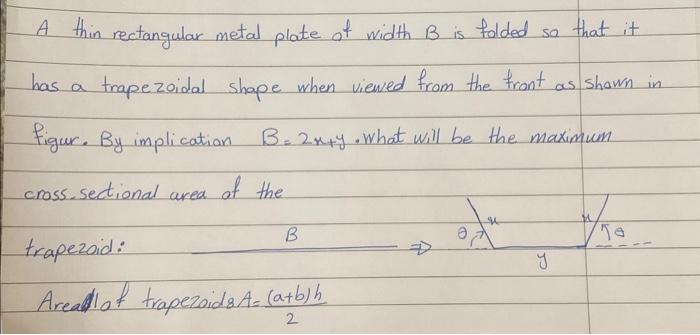 A thin rectangular metal plate of width B is folded so that it
has a trapezoidal shape when viewed from the front as shown in
figur. By implication B = 2x+y. What will be the maximum
cross-sectional area of the
trapezoid:
B
⇒
θ
x
x
θ
y
Area of trapezoid: A = (a+b)h
2